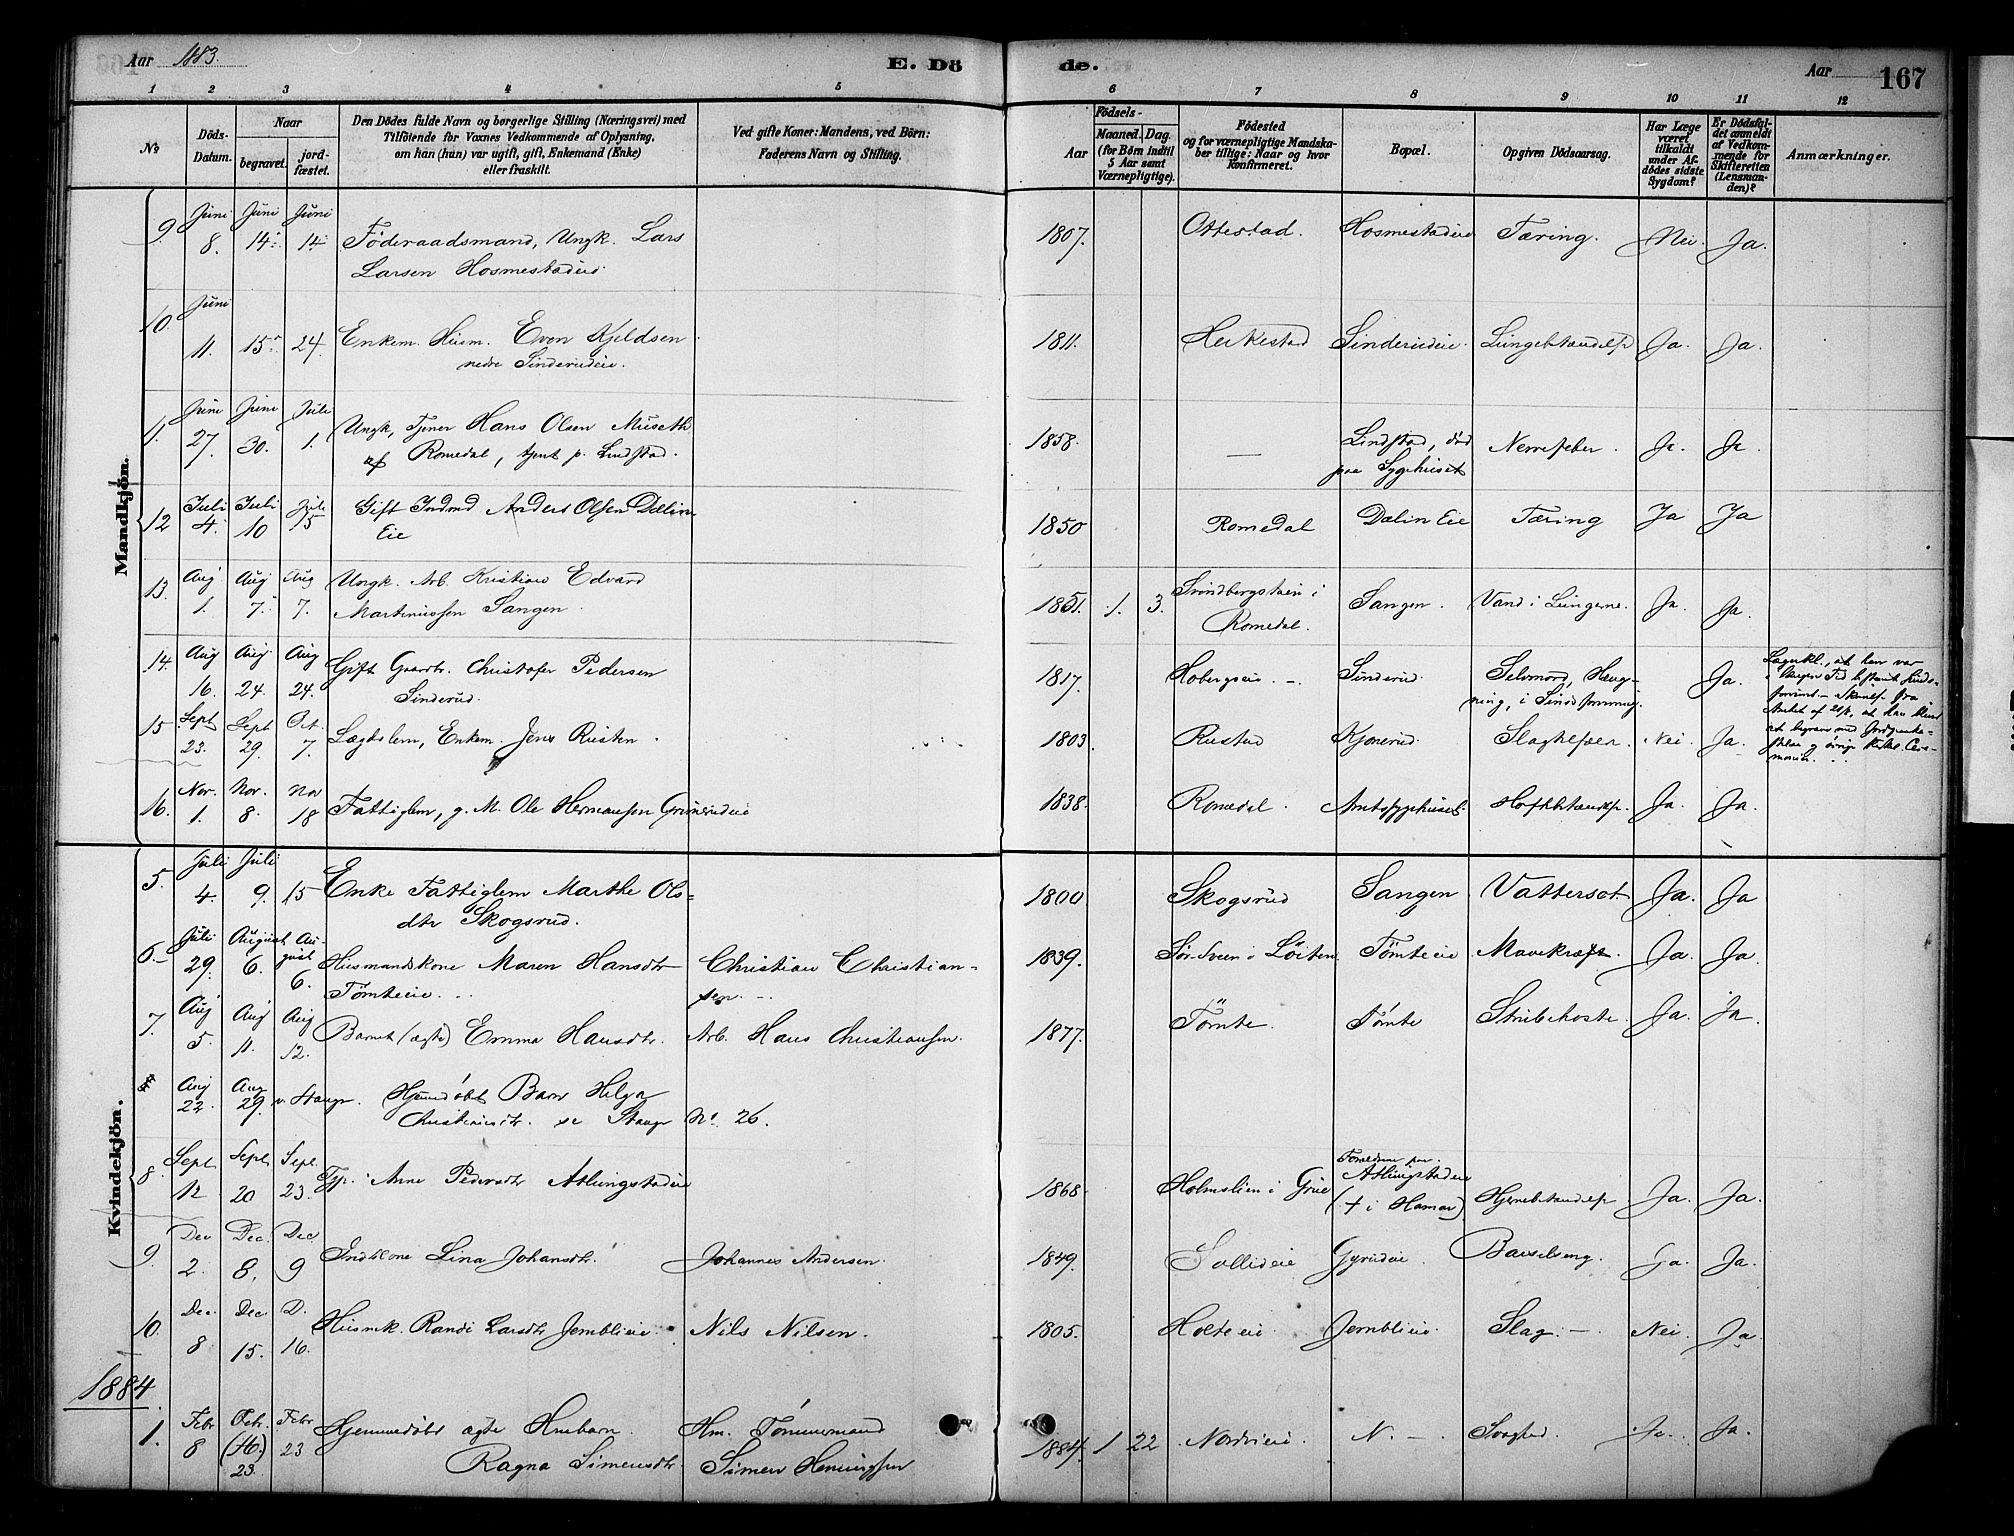 Aar 1883. E. Dö de. Aar 167
1 2 3 4 5 6 7 8 9 10 11 12
No
Döds-Datum.
Naar
begravet.
jord-fæstet.
Den Dödes fulde Navn og borgerlige Stilling (Næringsvei) med
Tilföiende for Voxnes Vedkommende af Oplysning,
om han (hun) var ugift, gift, Enkemand (Enke)
eller fraskilt.
Ved gifte Koner: Mandens, ved Börn:
Faderens Navn og Stilling.
Födsels-
Aar
Maaned. Dag.
(for Börn indtil
5 Aar samt
Værnepligtige).
Födested
og for værnepligtige Mandska-
ber tillige: Naar og hvor
konfirmeret.
Bopæl.
Opgiven Dödsaarsag.
Har Læge
været
tilkaldt
under Af-
dödes sidste
Sygdom?
Er Dödsfal-
det anmeldt
af Vedkom-
mende for
Skifteretten
(Lensman-
den)?
Anmærkninger.
Mandkjön.
9. Juni 8. Juni 14. Juni 14 Föderaadsmand, Ungk. Lars 1807. Ottestad. Hosmestadeie Tæring. Nei. Ja.
Larsen Hosmestadeie
10. Juni 11. 15. 24. Enkem. Husm. Even Kjeldsen 1811. Sinderudeie. Lungebetændelse Ja. Ja.
nedre Sinderudeie.
11. Juni 27. Juni 30. Juli 1. Ungk, Tjener Hans Olsen Museth 1858. — Lindstad, död Nervefeber Ja. Ja
af Romedal, tjent p. Lindstad. paa Sygehuset
12 Juli 4. Juli 10 Juli 15 Gift Indmd Anders Olsen Dælin 1850 Romedal Dælin Eie Tæring Ja Ja
Eie
13. Aug 1. Aug 7. Aug 7. Ungk. Arb. Kristian Edvard 1851. 1. 3. i Sangen. Vand i Lungerne. Ja. Ja.
Martinussen Sangen. Romedal.
14. Aug 16. Aug 24. Aug 24. Gift Gaardbr. Christofer Pedersen 1817. Hobergseie. Sinderud. Selvmord, Hæng- Ja.
Sinderud. ning, i
15 Sept 23. Sept 29. Oct. 7. Lægdslem, Enkem. Jens Rusten. 1803. Rustad Kjonerud. Slagtilfælde. Nei. Ja.
16. Nov. 1. Nov. 8. Nov 18 Fattiglem, g. M. Ole Hermansen Grimerudeie 1838. Romedal. Amtssygehuset Hoftebetændelse. Ja. Ja.
Kvindekjön.
5. Juli 4. Juli 9. 15 Enke Fattiglem Marthe Ols- 1800. Skogsrud Sangen Vattersot. Ja. Ja
dtr Skogsrud.
6. Juli 29. August 6. August 6. Husmandskone Maren Hansdtr Christian Christian- 1839. Sör-Sveen i Löiten Tömteeie Mavekræft. Ja. Ja.
Tömteeie. sen.
7. Aug 5. Aug 11. Aug 12. Barnet (ægte) Emma Hansdtr. Arb. Hans Christiansen. 1877. Tömte. Tömte Strubehoste. Ja. Ja.
Aug 22. Aug 29. v. Stange. Hjemdöbt Barn Helga
Christiansdtr. se Stange No. 26.
8. Sept 12 Sept 20 Sept. 23. Anne Pedersdtr Atlungstadeie 1868. Holmslien i Grue Atlungstadeie Hjernebetændelse Ja. Ja.
(† i Hamar)
9. Dec 2. Dec. 8. Dec 9 Indkone Lina Johansdtr. Johannes Andersen. 1849. Sollieie Gyrudeie. Barselseng. Ja. Ja.
10. Dec. 8 Dec 15. D. 16. Husmk. Randi Larsdtr Jemblieie. Nils Nilsen. 1805. Holteeie Jernblieie. Slag. — Nei. Ja
1884.
1. Febr 8 Febr. (16.) 23. Febr 23 Hjemmedöbt ægte Hmbarn. Hm. Tömmermand 1884. 1 22 Nordvieie. N. — Ja. Ja.
Ragna Simensdtr. Simen Henningsen